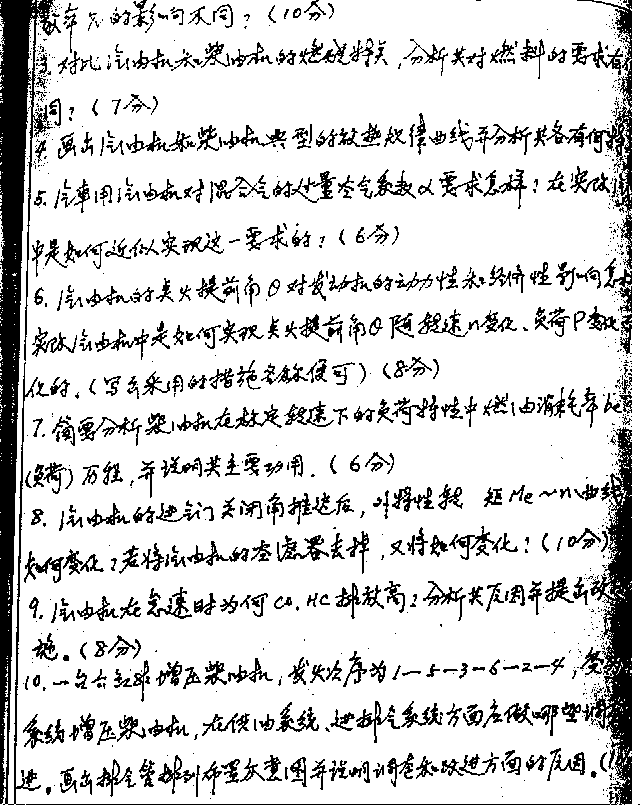 效率?的影响不同?(10分)
3.对比汽油机和柴油机的燃烧特点,分析其对燃料的要求有
同?(7分)
4.画出汽油机和柴油机典型的放热规律曲线并分析其各有何特
5.汽車用汽油机对混合气的过量空气系数α要求怎样?在实际
中是如何近似实现这一要求的?(6分)
6.汽油机的点火提前角θ对发动机的动力性和经济性影响怎
实际汽油机中是如何实现点火提前角θ随转速n变化、负荷P变化
化的.(写出采用的措施名称便可)(8分)
7.简要分析柴油机在标定转速下的负荷特性中燃油消耗率
(负荷)历程,并说明其主要功用.(6分)
8.汽油机的进气门关闭角推迟后,外特性转 矩Me~n曲线
如何变化?若将汽油机的空滤器去掉,又将如何变化?(10分)
9.汽油机在怠速时为何CO.HC排放高?分析其原因并提出改
施。(8分)
10.一台六缸非增压柴油机,发火次序为1—5—3—6—2—4,
系统增压柴油机,在供油系统、进排气系统方面应做哪些调
进。画出排气管排列布置示意图并说明调整和改进方面的原因。(1